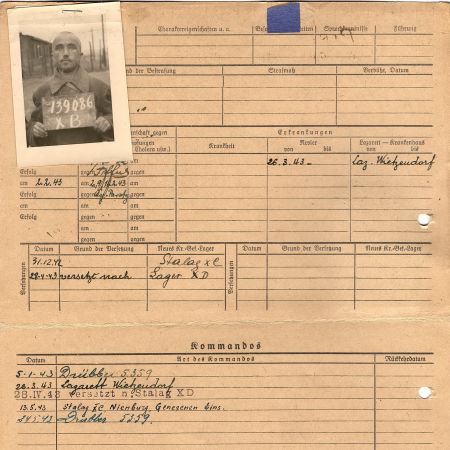 Charaktereigenschaften u. a.
Sprachkenntnisse
Führung
139086
X B
Grund der Bestrafung
Strafmaß
Verbüßt, Datum
Erkrankungen
gegen
Krankheit
Revier
von bis
Lazarett — Krankenhaus
von bis
26.3.43 –
Laz. Wietzendorf
Erfolg
gegen
2.2.43
am
am
am
am
Erfolg
gegen
gegen
am
am
am
am
Erfolg
gegen
gegen
Versetzungen
Datum
Grund der Versetzung
Neues Kr.-Gef.-Lager
Versetzungen
Datum
Grund der Versetzung
Neues Kr.-Gef.-Lager
31.12.42
Stalag X C
28.4.43 versetzt nach
Lager X D
Kommandos
Datum
Art des Kommandos
Rückkehrdatum
5.1.43 Drübber 5359
26.3.43 Lazarett Wietzendorf
28.IV.43 versetzt n. Stalag X D
13.5.43 Stalag X C Nienburg, Genesenen
Drübber 5359.